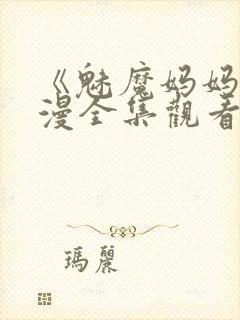 《魅魔妈妈
漫全集觀看
瑪麗